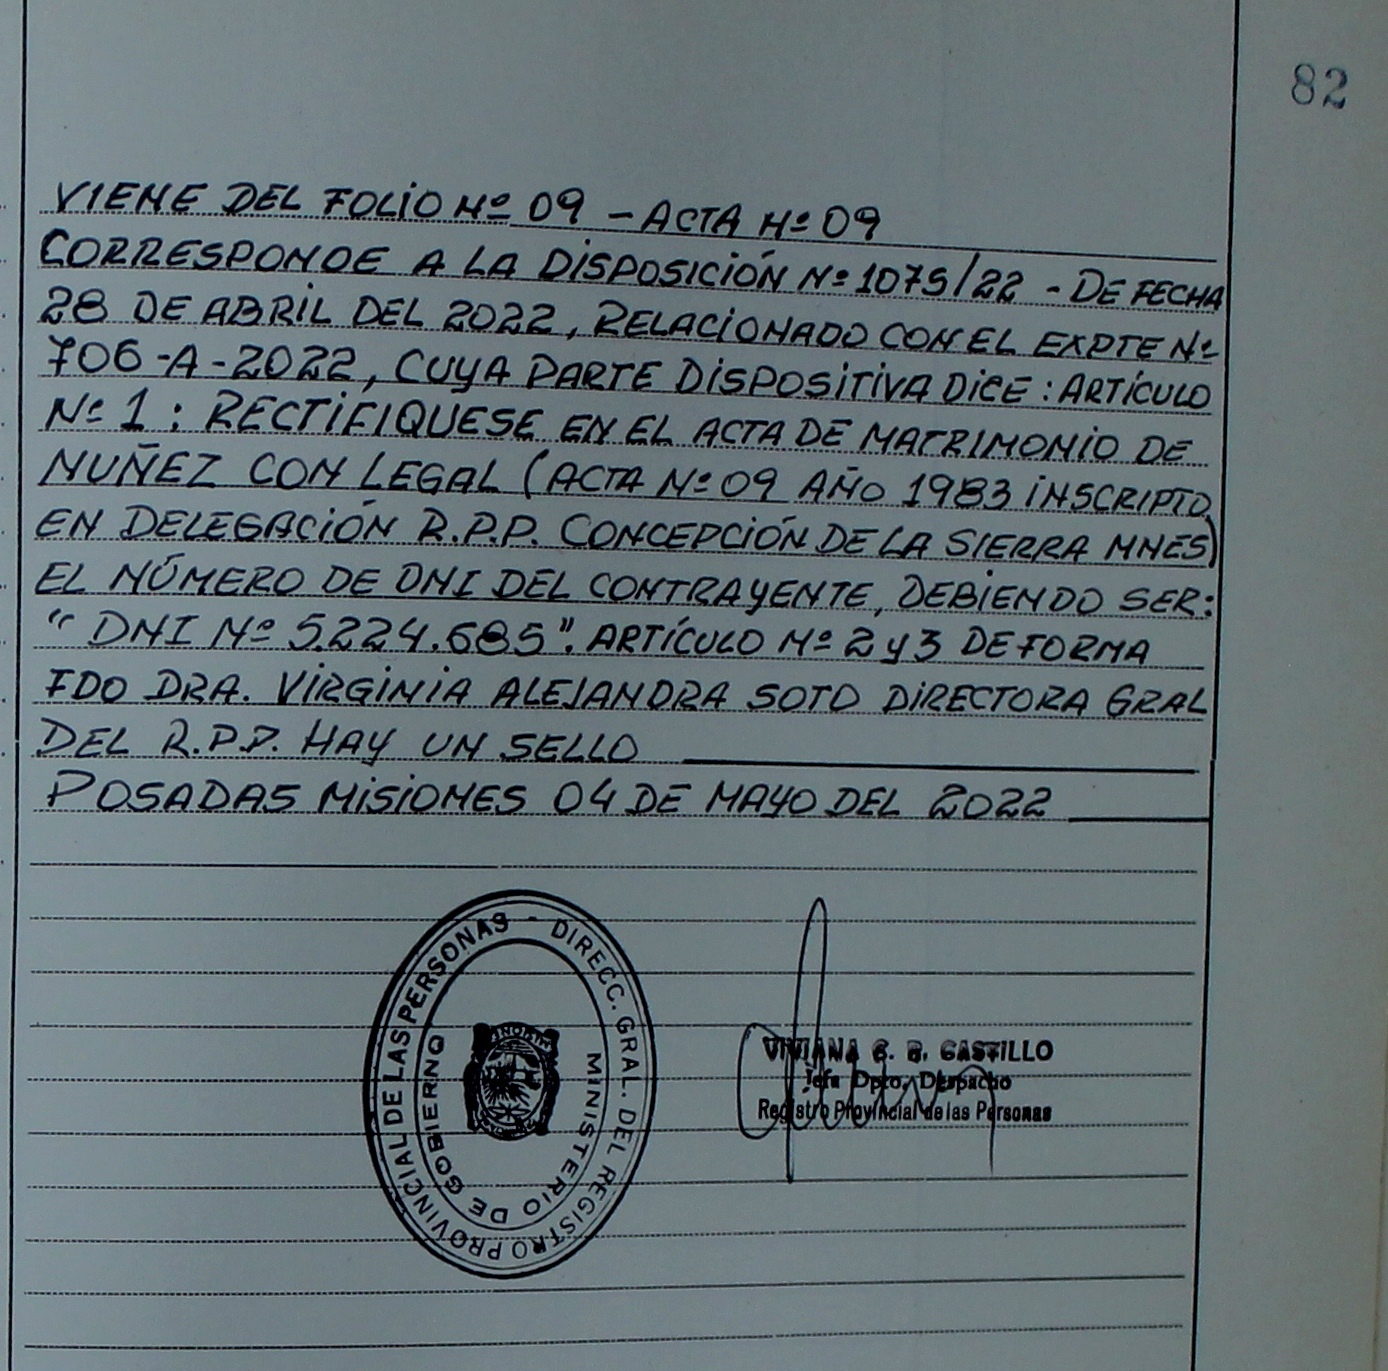 82
VIENE DEL FOLIO Nº 09 - ACTA Nº 09
CORRESPONDE A LA DISPOSICIÓN Nº 1075/22 - DE FECHA
28 DE ABRIL DEL 2022, RELACIONADO CON EL EXPTE Nº
706-A-2022, CUYA PARTE DISPOSITIVA DICE: ARTÍCULO
Nº 1: RECTIFIQUESE EN EL ACTA DE MATRIMONIO DE
NUÑEZ CON LEGAL (ACTA Nº 09 AÑO 1983 INSCRIPTO
EN DELEGACIÓN R.P.P. CONCEPCIÓN DE LA SIERRA MNES)
EL NÚMERO DE DNI DEL CONTRAYENTE, DEBIENDO SER:
"DNI Nº 5.224.685". ARTÍCULO Nº 2 y 3 DE FORMA
FDO DRA. VIRGINIA ALEJANDRA SOTO DIRECTORA GRAL
DEL R.P.P. HAY UN SELLO
POSADAS MISIONES 04 DE MAYO DEL 2022
DIRECC. GRAL. DEL REGISTRO PROVINCIAL DE LAS PERSONAS -
MINISTERIO DE GOBIERNO
VIVIANA C. B. CASTILLO
Jefa Dpto. Despacho
Registro Provincial de las Personas